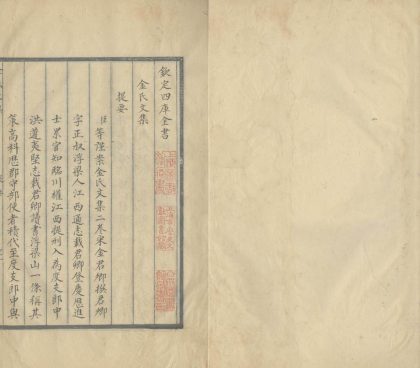 欽定四庫全書
金氏文集
提要
臣等謹案金氏文集二卷宋金君卿撰君卿
字正叔浮梁人江西通志載君卿登慶厯進
士累官知臨川權江西提刑入為度支郎中
洪邁夷堅志載君卿讀書浮梁山一條稱其
策高科歴郡守部使者積代至度支郎中與